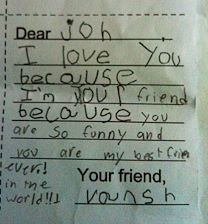 Dear Joh,
I love You
because
I'm YOUr friend
because you
are so funny and
you are my best frien
ever!
in the
world!!!
Your friend,
vansh